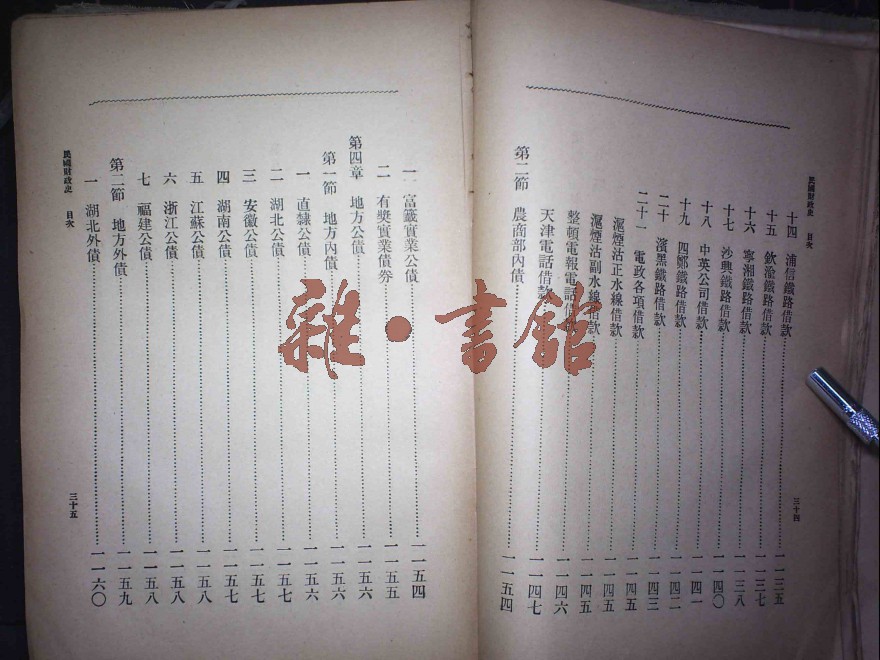 民國財政史 目次 三十四
十四 浦信鐵路借款 一一三五
十五 欽渝鐵路借款 一一三七
十六 寧湘鐵路借款 一一三八
十七 沙興鐵路借款 一一四〇
十八 中英公司借款 一一四一
十九 四鄭鐵路借款 一一四二
二十 濱黑鐵路借款 一一四三
二十一 電政各項借款 一一四五
滬煙沽正水線借款 一一四五
滬煙沽副水線借款 一一四五
整頓電報電話借款 一一四六
天津電話借款 一一四七
第二節 農商部內債 一一五四
一 富籤實業公債 一一五四
二 有獎實業債券 一一五五
第四章 地方公債 一一五六
第一節 地方內債 一一五六
一 直隸公債 一一五六
二 湖北公債 一一五七
三 安徽公債 一一五七
四 湖南公債 一一五七
五 江蘇公債 一一五八
六 浙江公債 一一五八
七 福建公債 一一五八
第二節 地方外債 一一五九
一 湖北外債 一一六〇
民國財政史 目次 三十五
雜·書館